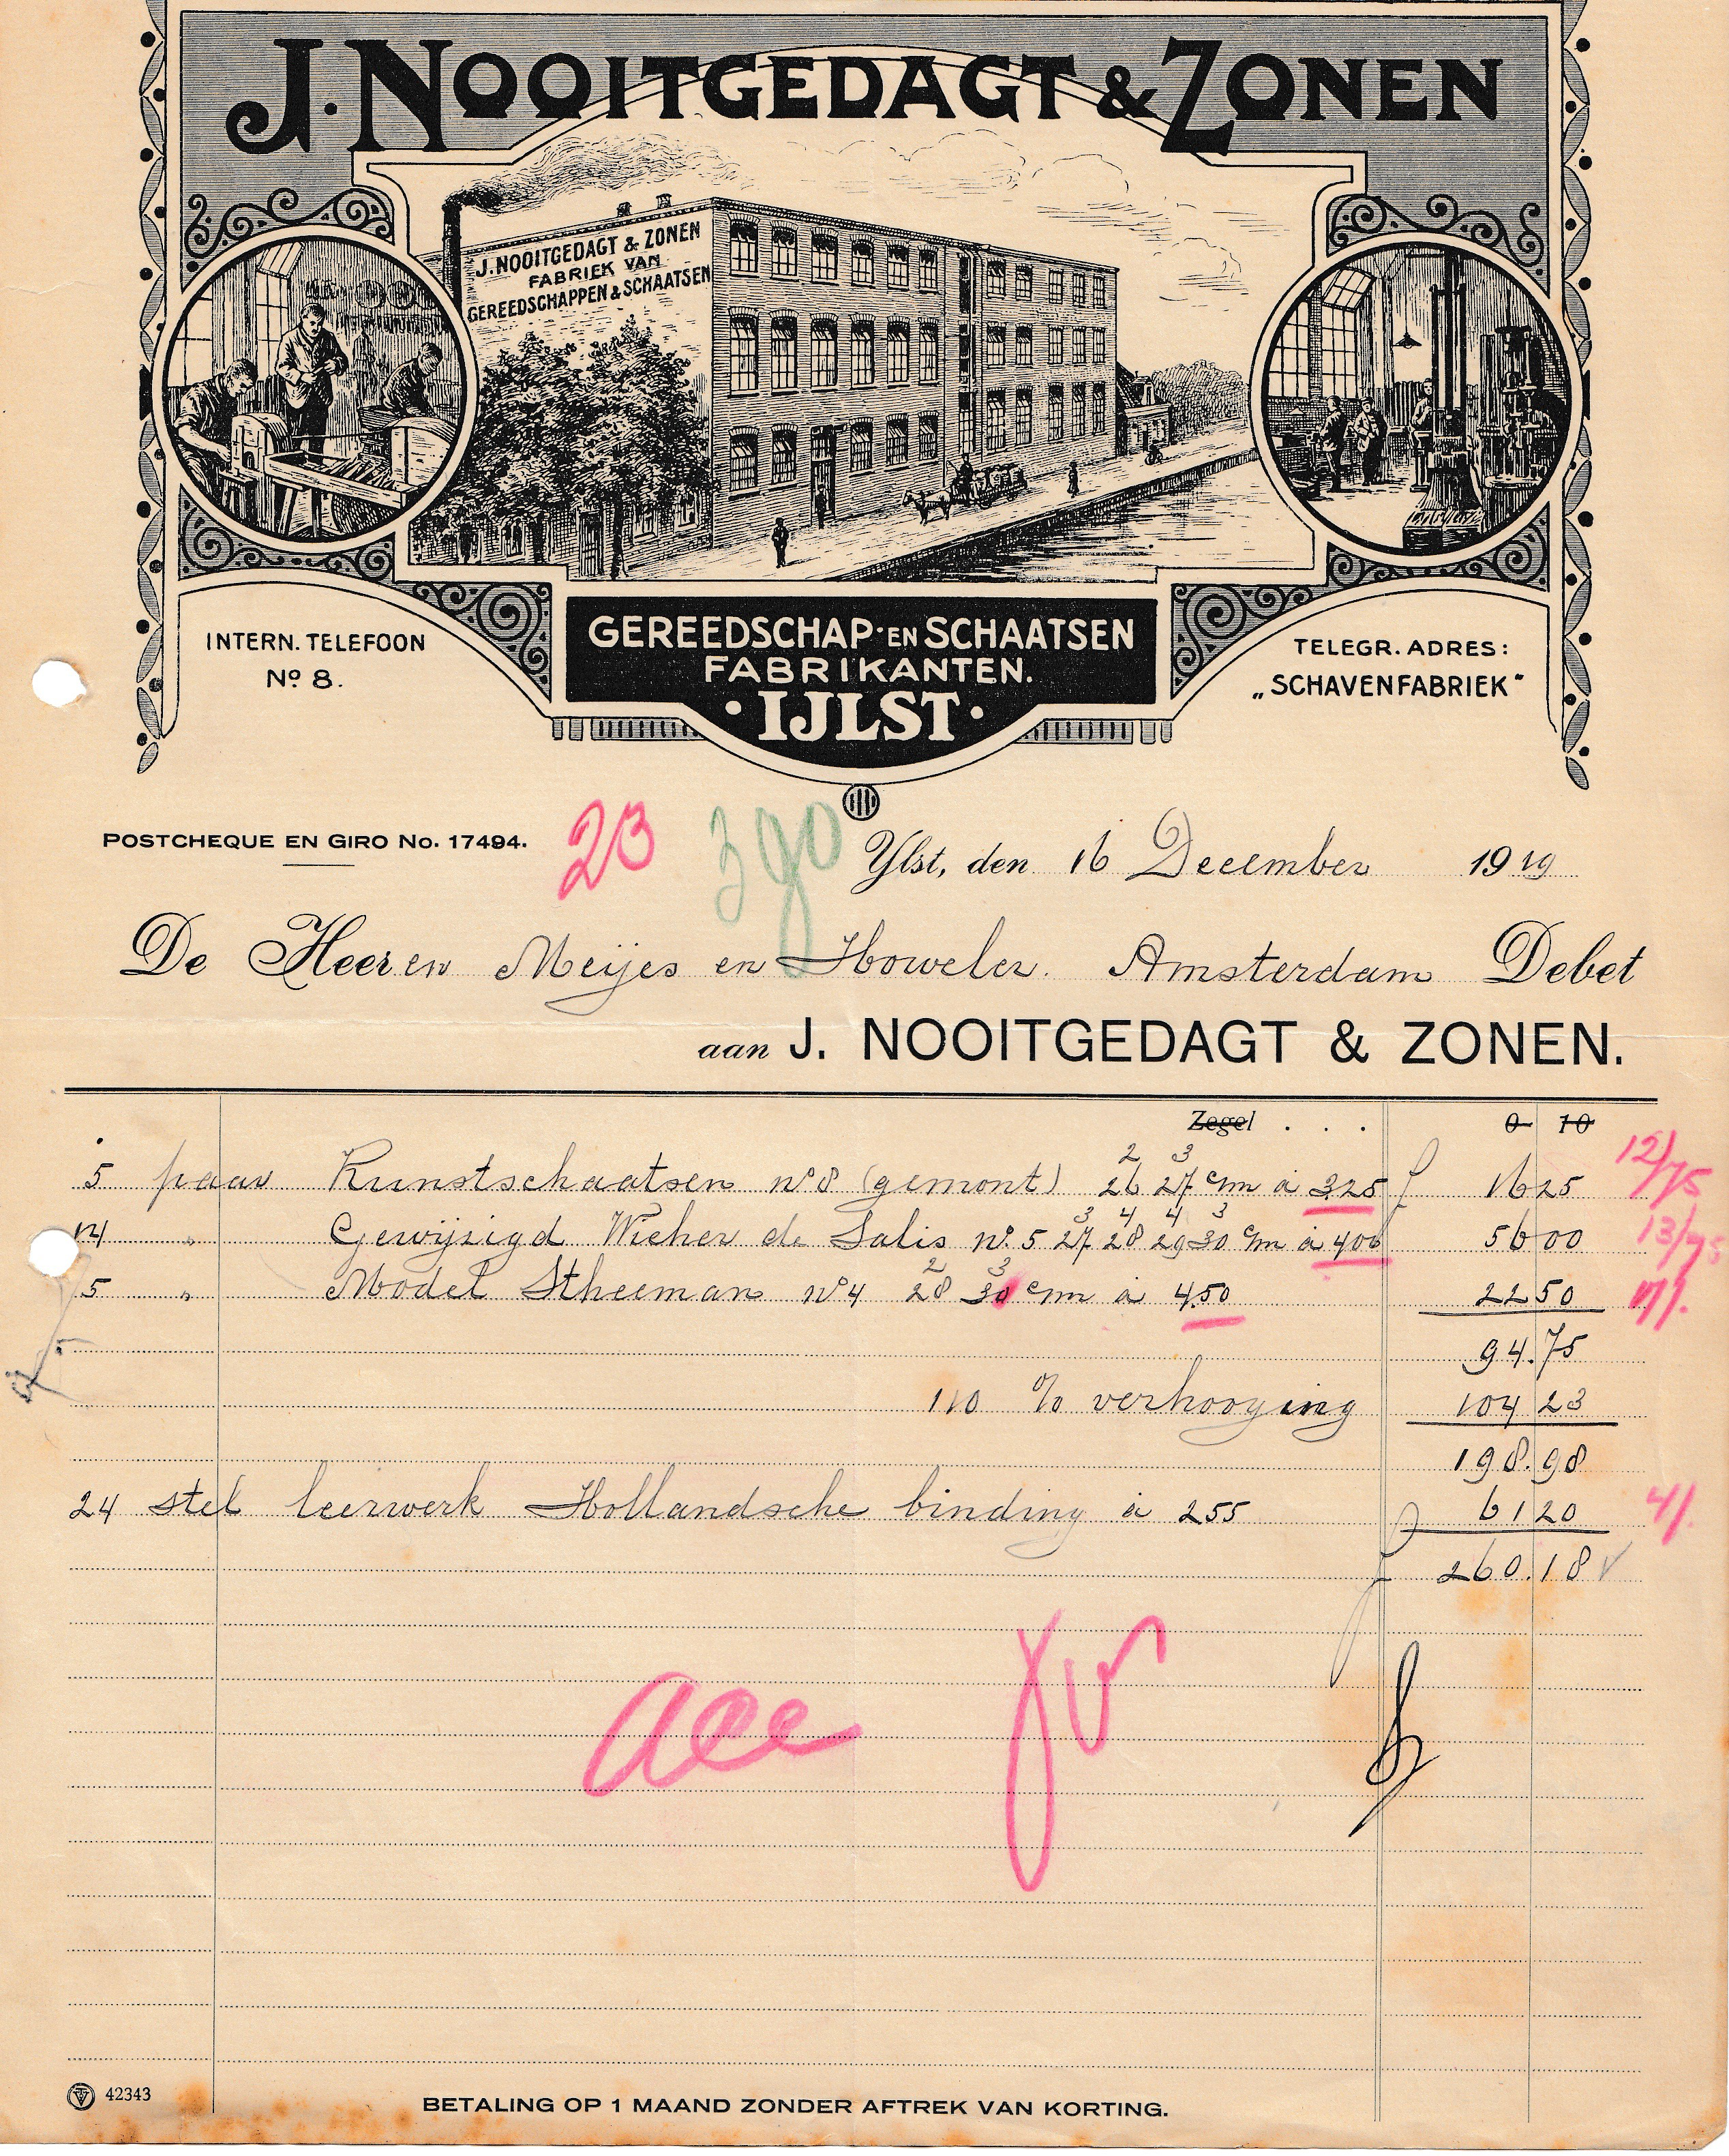 J. NOOITGEDAGT & ZONEN
J. NOOITGEDAGT & ZONEN
FABRIEK VAN
GEREEDSCHAPPEN & SCHAATSEN
INTERN. TELEFOON
No 8.
GEREEDSCHAP- EN SCHAATSEN
FABRIKANTEN.
· IJLST ·
TELEGR. ADRES:
„SCHAVENFABRIEK"
POSTCHEQUE EN GIRO No. 17494.
23 390
Ylst, den 16 December 1919
De Heeren Meijes en Höweler. Amsterdam Debet
aan J. NOOITGEDAGT & ZONEN.
Zegel . . . 0 10
2 3
5 paar Kunstschaatsen no 8 (gemont) 26 27 cm à 325 f 16 25 12/75
3 4 4 3
14 „ Gewijzigd Wicher de Salis no. 5 27 28 29 30 cm à 400 56 00 13/75
2 3
5 „ Model Stheeman no 4 28 30 cm à 4.50 22 50 17/.
94.75
110 % verhooging 104 23
198.98
24 stel leerwerk Hollandsche binding à 255 61 20 4/.
f 260.18 V
acc
42343
BETALING OP 1 MAAND ZONDER AFTREK VAN KORTING.